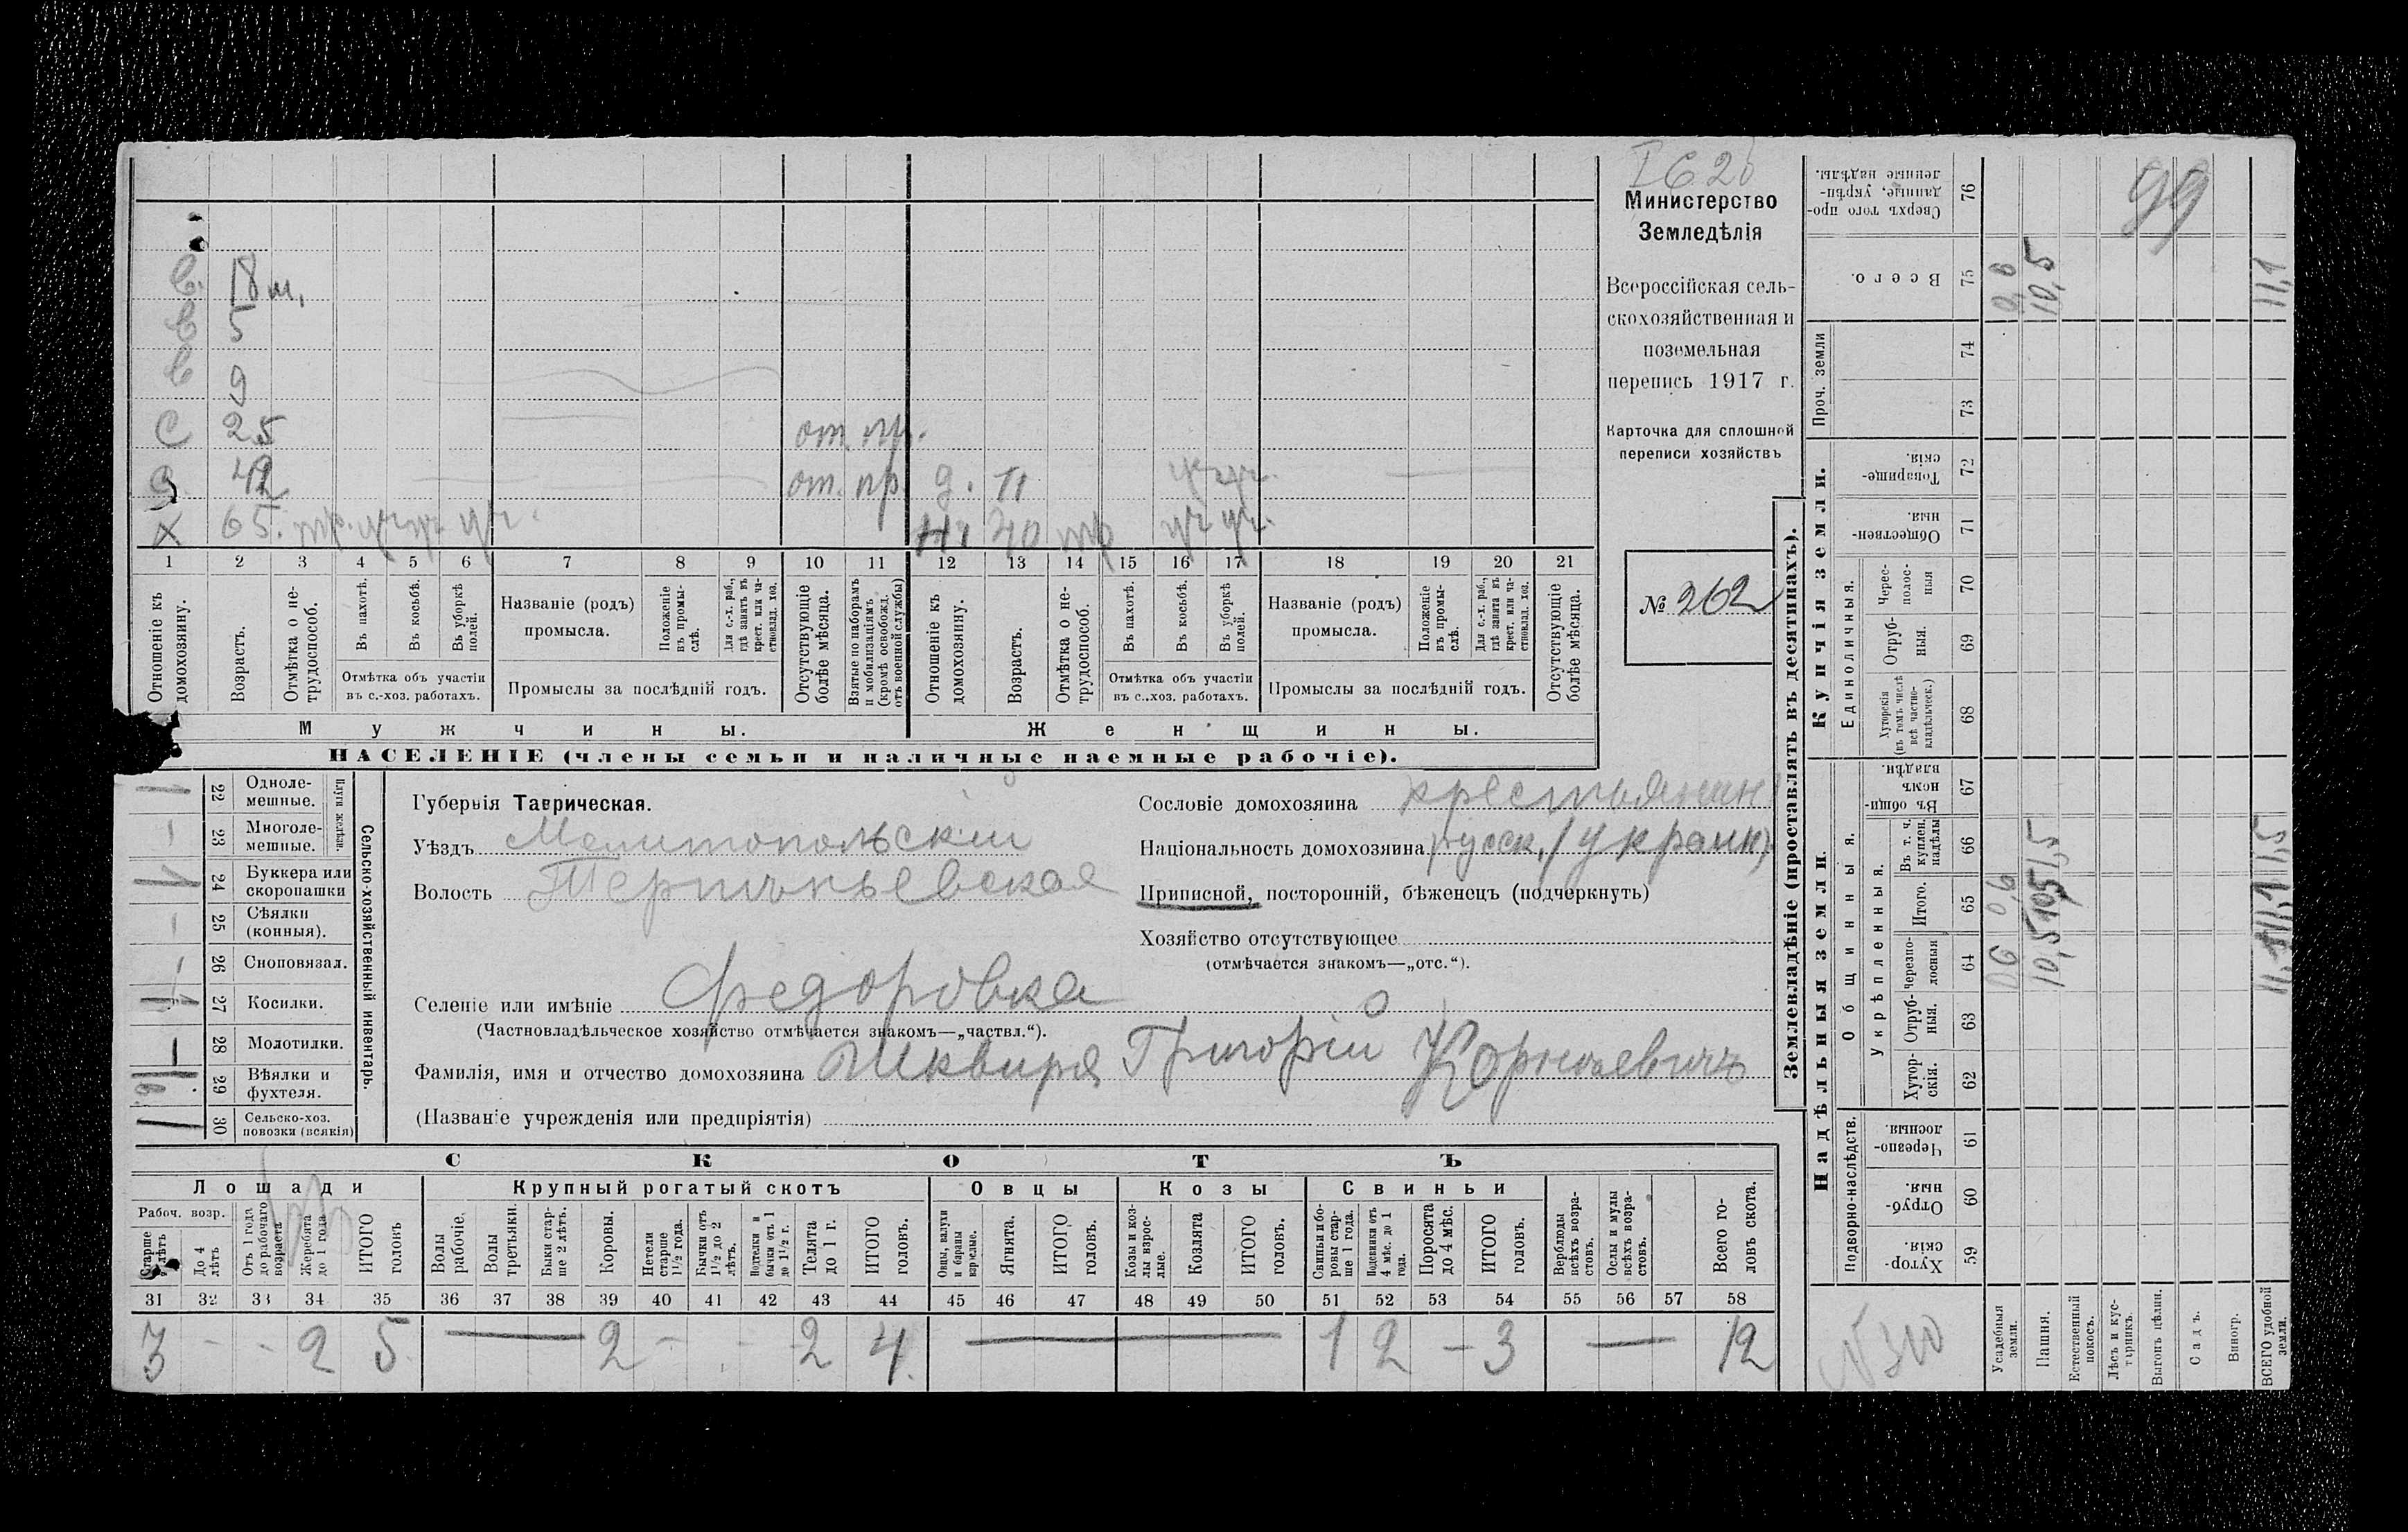 Министерство
Земледѣлія
Всероссійская сель-
скохозяйственная и
поземельная
перепись 1917 г.
Карточка для сплошной
переписи хозяйствъ
№ 262
в. 18 м.
в 5
в 9
с 25 от. пр.
с 42 от. пр. д. 11
х 65.
1 2 3 4 5 6 7 8 9 10 11 12 13 14 15 16 17 18 19 20 21
Отношеніе къ домохозяину.
Возрастъ.
Отмѣтка о не-трудоспособ.
Въ пахотѣ.
Въ косьбѣ.
Въ уборкѣ полей.
Отмѣтка объ участіи
въ с.-хоз. работахъ.
Названіе (родъ)
промысла.
Положеніе въ промы-слѣ.
Для с.-х. раб., гдѣ занятъ въ крест. или ча-стновлад. хоз.
Промыслы за послѣдній годъ.
Отсутствующіе болѣе мѣсяца.
Взятые по наборамъ и мобилизаціямъ (кромѣ освобожд. отъ военной службы)
Отношеніе къ домохозяину.
Возрастъ.
Отмѣтка о не-трудоспособ.
Въ пахотѣ.
Въ косьбѣ.
Въ уборкѣ полей.
Отмѣтка объ участіи
въ с.-хоз. работахъ.
Названіе (родъ)
промысла.
Положеніе въ промы-слѣ.
Для с.-х. раб., гдѣ занята въ крест. или ча-стновлад. хоз.
Промыслы за послѣдній годъ.
Отсутствующіе болѣе мѣсяца.
Мужчины. Женщины.
НАСЕЛЕНІЕ (члены семьи и наличные наемные рабочіе).
Сельско-хозяйственный инвентарь.
Плуги желѣзн.
22 Одноле-мешные.
23 Многоле-мешные.
24 Буккера или скоропашки
25 Сѣялки (конныя).
26 Сноповязал.
27 Косилки.
28 Молотилки.
29 Вѣялки и фухтеля.
30 Сельско-хоз. повозки (всякія)
Губернія Таврическая.
Уѣздъ Мелитопольскій
Волость
Селеніе или имѣніе Федоровка
(Частновладѣльческое хозяйство отмѣчается знакомъ—„частвл.“).
Фамилія, имя и отчество домохозяина Шквиря Григорій
(Названіе учрежденія или предпріятія)
Сословіе домохозяина крестьянин
Національность домохозяина русск. / украин.
Приписной, посторонній, бѣженецъ (подчеркнуть)
Хозяйство отсутствующее
(отмѣчается знакомъ—„отс.“).
СКОТЪ
Лошади Крупный рогатый скотъ Овцы Козы Свиньи
Рабоч. возр.
Старше 4 лѣтъ
До 4 лѣтъ
Отъ 1 года до рабочаго возраста
Жеребята до 1 года
ИТОГО головъ
Волы рабочіе.
Волы третьяки.
Быки стар-ше 2 лѣтъ.
Коровы.
Нетели старше 1½ года.
Бычки отъ 1½ до 2 лѣтъ.
Подтелки и бычки отъ 1 до 1½ г.
Телята до 1 г.
ИТОГО головъ.
Овцы, валухи и бараны взрослые.
Ягнята.
ИТОГО головъ.
Козы и коз-лы взрос-лые.
Козлята
ИТОГО головъ.
Свиньи и бо-ровы стар-ше 1 года.
Подсвинки отъ 4 мѣс. до 1 года.
Поросята до 4 мѣс.
ИТОГО головъ.
Верблюды всѣхъ возра-стовъ.
Ослы и мулы всѣхъ возра-стовъ.
Всего го-ловъ скота.
31 32 33 34 35 36 37 38 39 40 41 42 43 44 45 46 47 48 49 50 51 52 53 54 55 56 57 58
3 - - 2 5 — 2 - - 2 4 — 1 2 - 3 — 12
Землевладѣніе (проставлять въ десятинахъ).
Надѣльныя земли. Купчія земли.
Подворно-наслѣдств.
Общинныя.
Укрѣпленныя.
Единоличныя.
Проч. земли
59 Хутор-скія.
60 Отруб-ныя.
61 Черезпо-лосныя.
62 Хутор-скія.
63 Отруб-ныя.
64 черезпо-лосныя
65 Итого.
66 Въ т. ч. куплен. надѣлы
67 Въ общин-номъ владѣн.
68 Хуторскія (въ томъ числѣ всѣ частно-владѣльческ.)
69 Отруб-ныя.
70 Черес-полос-ныя
71 Обществен-ныя.
72 Товарище-скія.
73
74
75 Всего.
76 Сверхъ того про-данные, укрѣп-ленные надѣлы.
Усадебныя земли.
Пашня. 10,5
Естественный покосъ.
Лѣсъ и кус-тарникъ.
Выгонъ цѣлин.
Садъ.
Виногр.
ВСЕГО удобной земли. 11,1
99